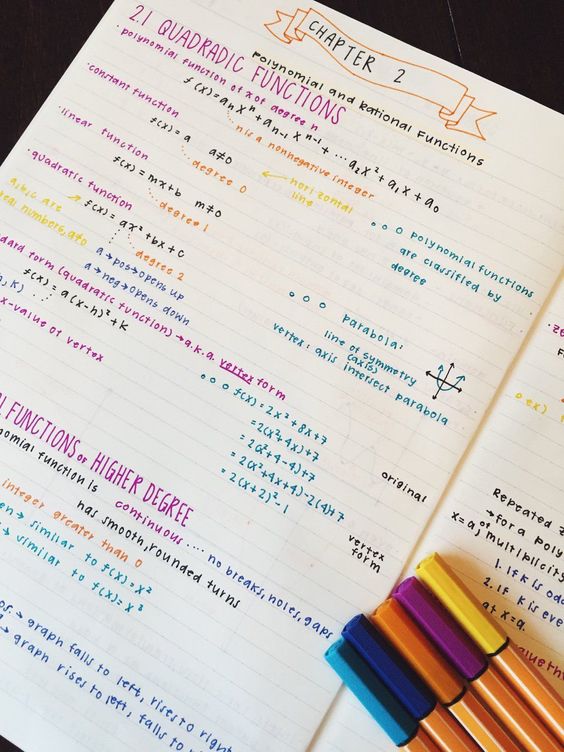 CHAPTER 2
Polynomial and Rational Functions
2.1 QUADRADIC FUNCTIONS
· polynomial function of x of degree n
f(x) = aₙxⁿ + aₙ₋₁ xⁿ⁻¹ + ... a₂x² + a₁x + a₀
n is a nonnegative integer
· constant function
f(x) = a a≠0
degree 0
horizontal
line
· linear function
f(x) = mx+b m≠0
degree 1
· quadratic function
a,b,c are
real numbers, a≠0
f(x) = ax² + bx + c
degree 2
a → pos → opens up
a → neg → opens down
dard form (quadratic function) → a.k.a. vertex form
f(x) = a(x-h)² + k
h, k)
x-value of vertex
polynomial functions
are classified by
degree
parabola:
line of symmetry
(axis)
vertex: axis intersect parabola
f(x) = 2x² + 8x + 7
= 2(x² + 4x) + 7
= 2(x² + 4 - 4) + 7
= 2(x² + 4x + 4) - 2(4) + 7
= 2(x+2)² - 1
original
vertex
form
L FUNCTIONS OF HIGHER DEGREE
nomial function is continuous .... no breaks, holes, gaps
has smooth, rounded turns
integer greater than 0
en → similar to f(x) = x²
→ similar to f(x) = x³
os. → graph falls to left, rises to right
→ graph rises to left, falls to
ex)
Repeated
→ for a poly
x=a, of
multiplicity
1. If K is odd
2. If K is eve
at x=a.